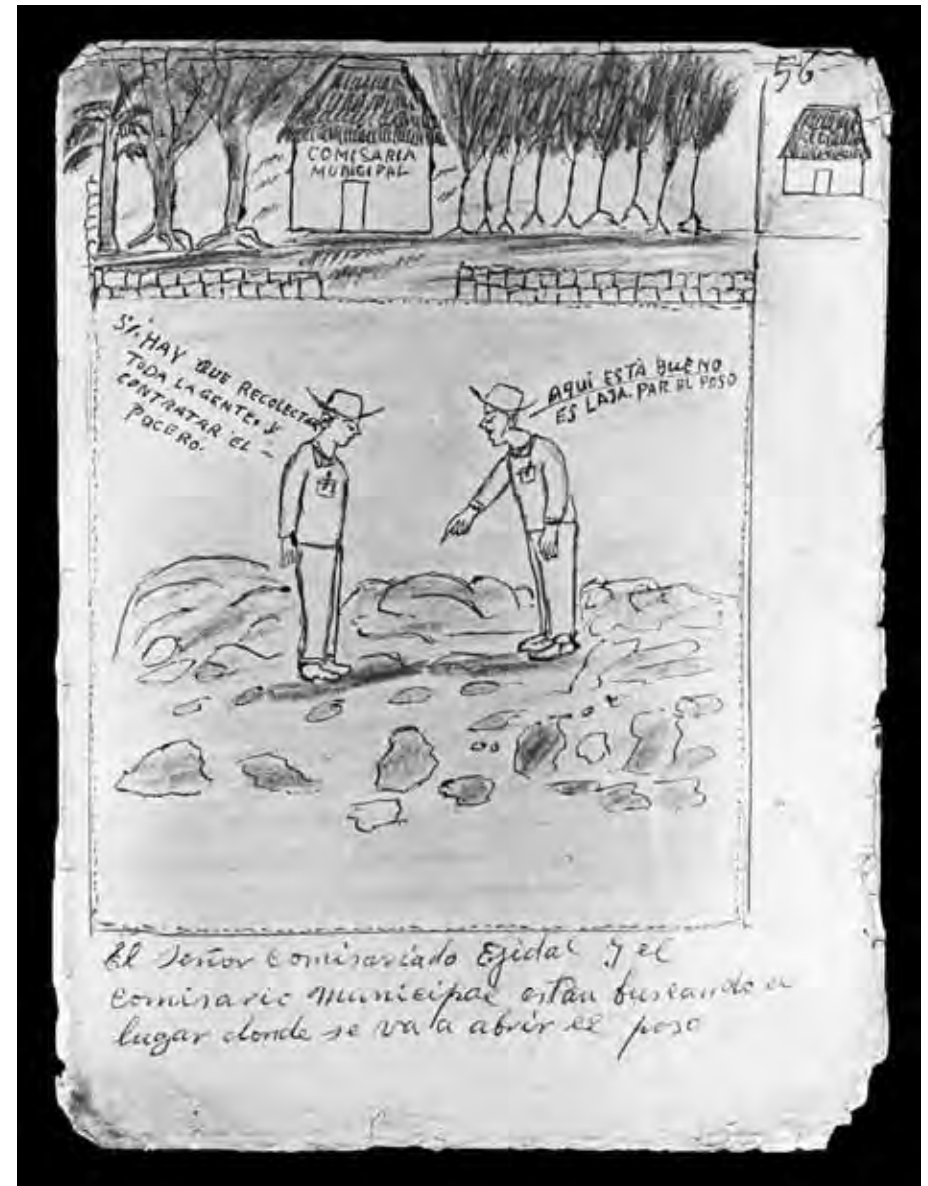 56
COMISARIA
MUNICIPAL
SI. HAY QUE RECOLECTAR
TODA LA GENTE. Y
CONTRATAR EL -
POCERO.
AQUI ESTÁ BUENO
ES LAJA. PAR EL POSO
El Señor Comisariado Ejidal y el
Comisario Municipal estan buscando el
lugar donde se va a abrir el poso